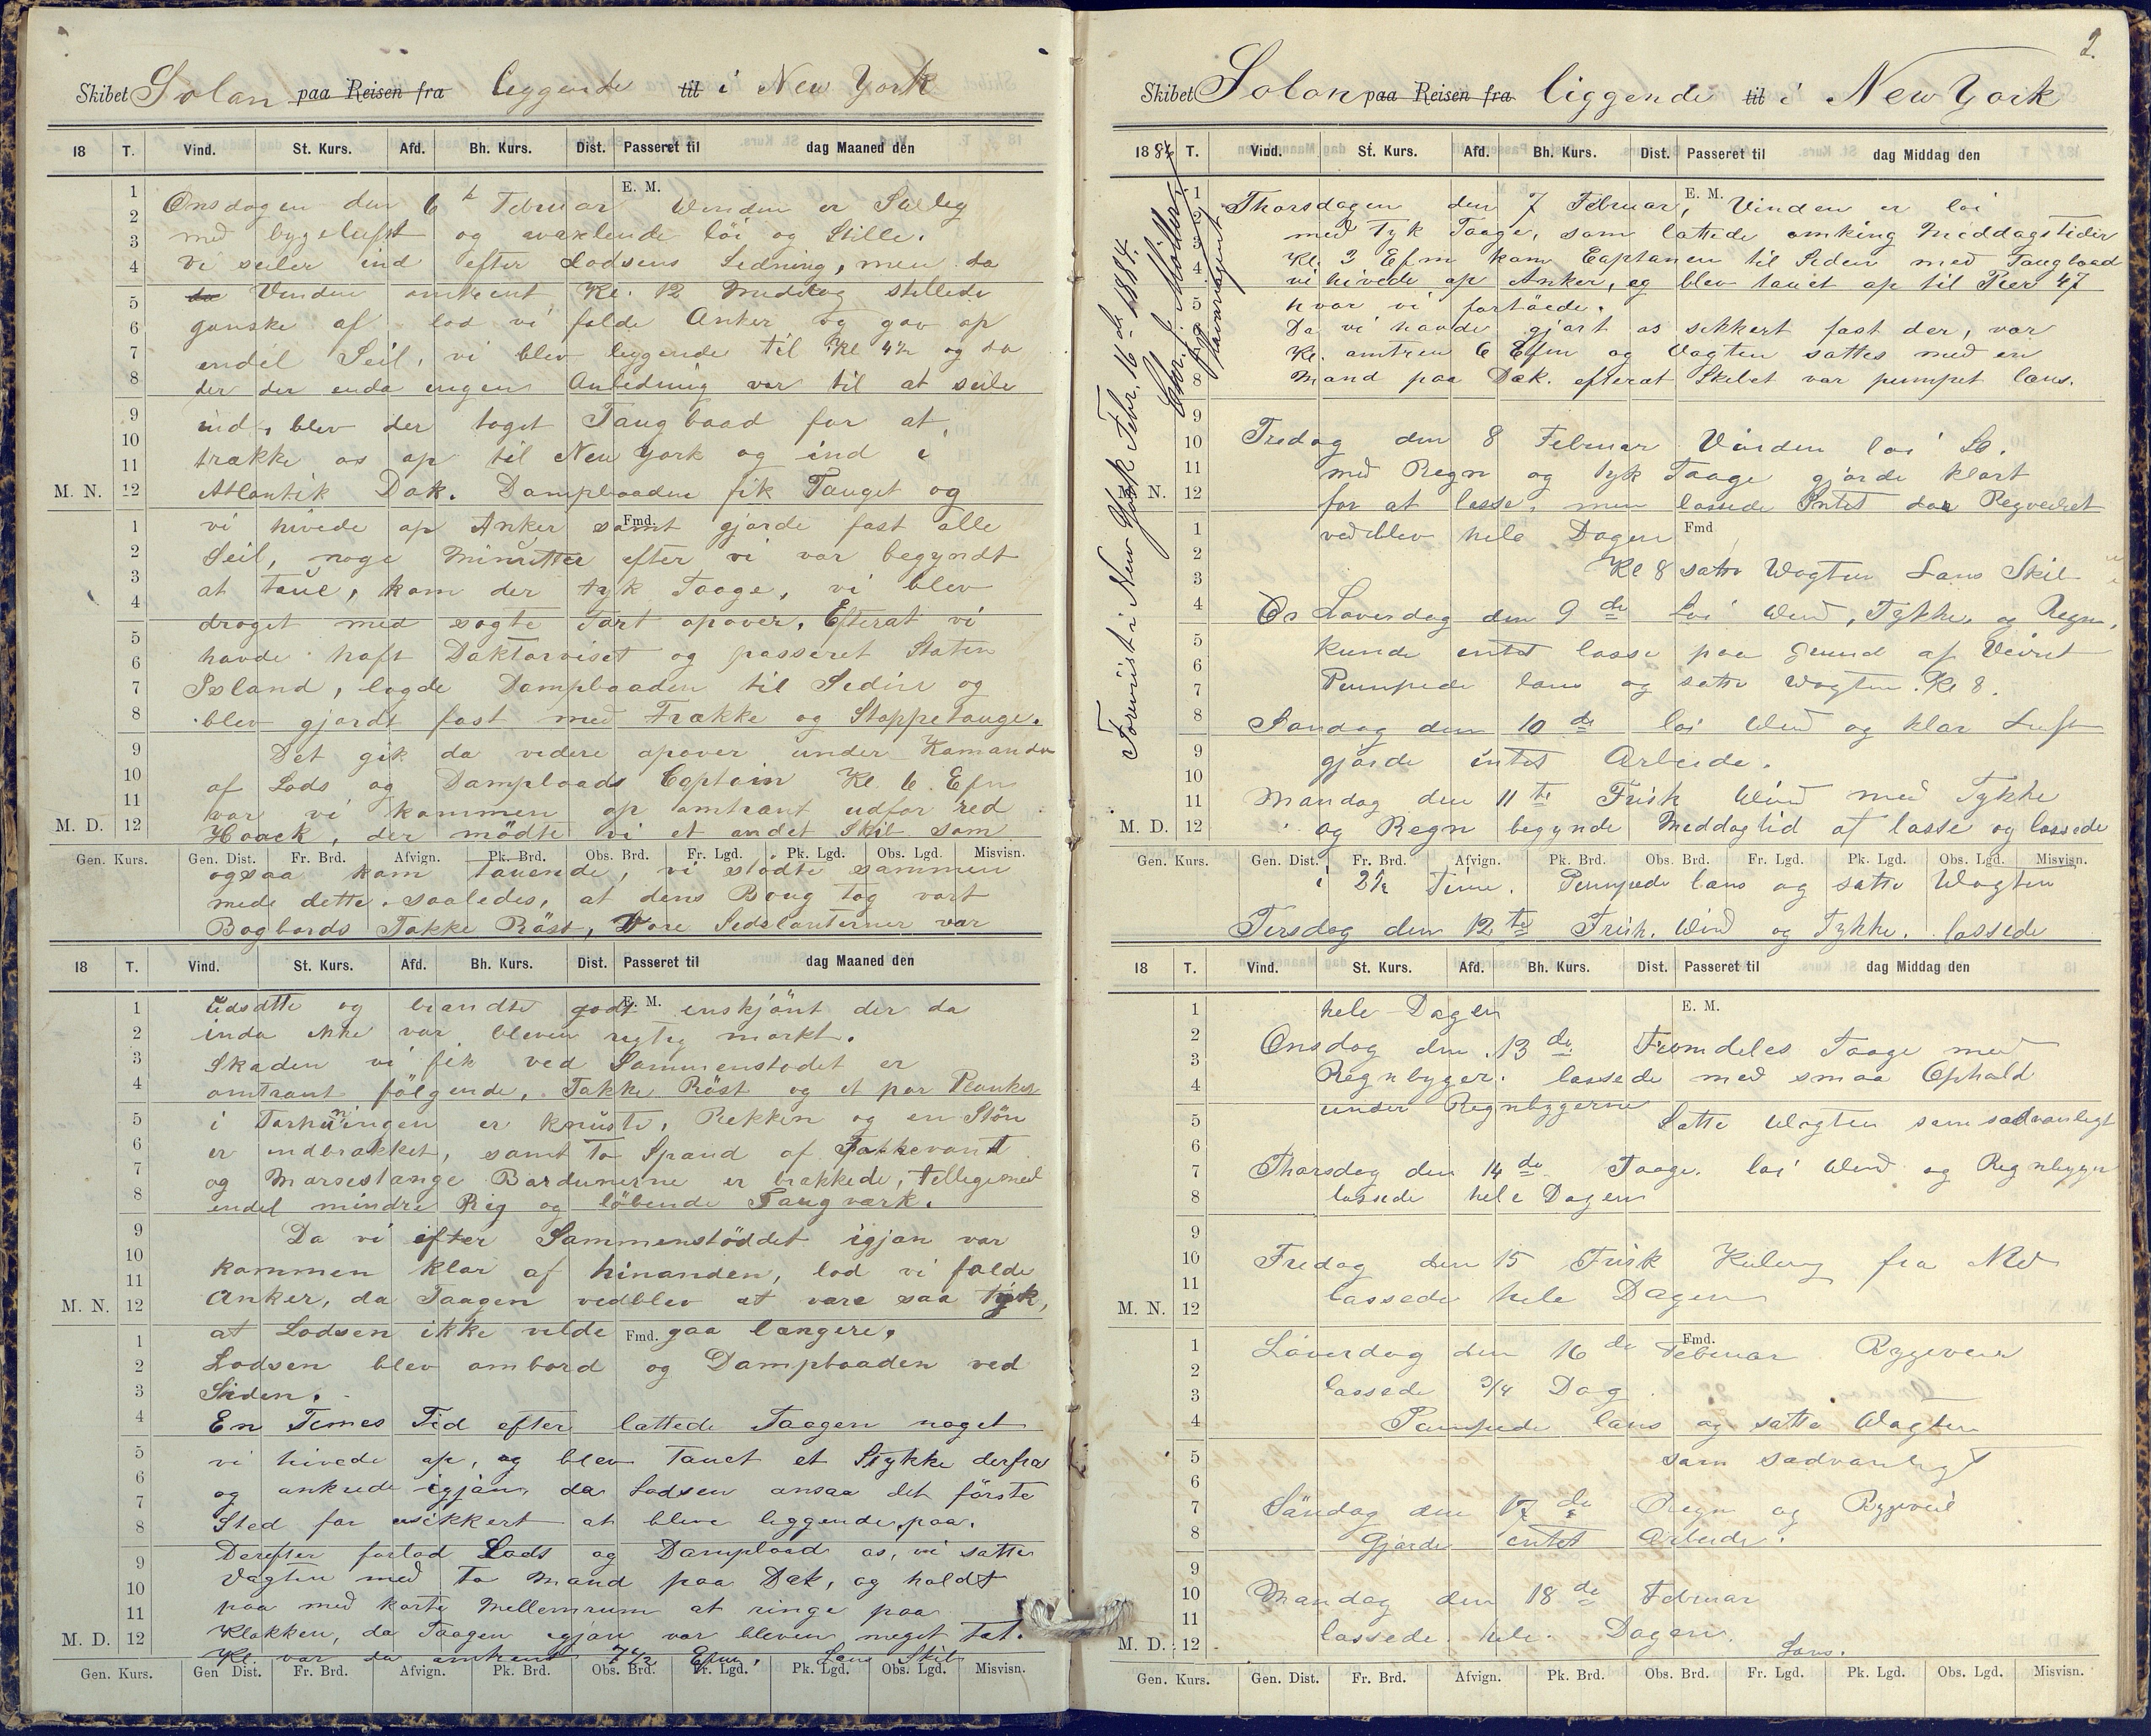 Skibet Solon paa Reisen fra leggende til i New York
18 T. Vind. St. Kurs. Afd. Bh. Kurs. Dist. Passeret til dag Maaned den
E. M.
Onsdagen den 6 Februar Vinden er
med bygeluft og vaxlende löi og Stille.
vi seiler ind efter Lodsens Ledning, men da
da Vinden omkrent Kl. 12 Middag stillede
ganske af lod vi falde Anker og gav op
endel Seil, vi blev leggende til Kl 4½ og da
der der enda ingen Anledning var til at seile
ind, blev der toget Taugbaad for at
trække os op til New York og ind i
M. N. Atlantik Dok. Dampbaaden fik Tauget og
vi hivede op Anker samt gjorde fast alle
Fmd.
Seil, noge Minutter efter vi var begyndt
at taue, kom der tyk Taage, vi blev
droget med sagte Fart opover, Efterat vi
havde haft Doktorviset og passeret Staten
Island, lagde Dampbaaden til Siden og
blev gjordt fast med Trække og Stoppetauge.
Det gik da videre opover under Kamando
af Lods og Dampbaads Captain Kl. 6 Efm
var vi kommen op omtrant udfor red
M. D. Hoock, der mödte vi et andet Skib som
Gen. Kurs. Gen. Dist. Fr. Brd. Afvign. Pk. Brd. Obs. Brd. Fr. Lgd. Pk. Lgd. Obs. Lgd. Misvisn.
ogsaa kom tauende, vi stödte sammen
mede dette saaledes, at dens Boug tog vort
Bagbords Fokke Röst, Vore Sidelanterner var
18 T. Vind. St. Kurs. Afd. Bh. Kurs. Dist. Passeret til dag Maaned den
E. M.
udsatte og brandte godt enskjönt der da
inda ikke var bleven regtig morkt.
Skaden vi fik ved Sammenstodet er
omtrant fölgende, Fokke Röst og et par Planker
i Forhudningen er knuste, Rekken og en Stön
er indbrakket, samt to Spand af Fokkevant
og Marsestange Bardunerne er brakkede, tellegemed
endel mindre Rig og löbende Taugvark.
Da vi efter Sammenstöddet igjan var
kommen klar af hinanden, lod vi falde
M. N. Anker, da Taagen vedblev at vare saa tyk,
at Lodsen ikke vilde gaa langere.
Fmd.
Lodsen blev ombord og Dampbaaden ved
Siden.
En Times Tid efter lattede Taagen noget
vi hivede op, og blev Tauet et Stykke derfra
og ankrede igjan, da Lodsen ansaa det förste
Sted for usikkert at blive leggende paa.
Derefter forlod Lods og Dampbaad os, vi satte
Vagten med to Mand paa Dek, og holdt
paa med korte Mellemrum at ringe paa
M. D. Klokken, da Taagen igjan var bleven meget tat.
Kl. var da omtrent 7½ Efm. Lens Skib
Gen. Kurs. Gen Dist. Fr. Brd. Afvign. Pk. Brd. Obs. Brd. Fr. Lgd. Pk. Lgd. Obs. Lgd. Misvisn.
2.
Skibet Solon paa Reisen fra liggende til i New York
1884 T. Vind. St. Kurs. Afd. Bh. Kurs. Dist. Passeret til dag Middag den
Foreviist i New York Febr. 16de 1884.
Chr. J. Möller
E. M.
Thorsdagen den 7 Februar, Vinden er löi
med Tyk Taage, som lattede omking Meddagstider
Kl. 3 Efm kom Captanen til Siden med Taugbaad
vi hivede op Anker, og blev tauet op til Pier 47
hvor vi fortöiede.
Da vi havde gjort os sikkert fast der, var
Kl. omtren 6 Efm og Vagten sattes med en
Mand paa Dæk. efterat Skibet var pumpet læns.
Fredag den 8 Februar Vinden loi So.
med Regn og tyk Taage gjorde klart
M. N. for at losse, men lossede Intet da Regveiret
vedblev hele Dagen
Fmd
Kl 8 satte Wagten Lans Skib
Löverdag den 9de Loi Wind, Tykke, og Regn,
kunde intet losse paa Grund af Veiret
Pumpede lans og satte Wagten. Kl 8.
Söndag den 10de loi Wind og klar Luft
gjorde intet Arbeide.
Mandag den 11te Frisk Wind med Tykke
M. D. og Regn begynde Meddagtid at losse og lossede
Gen. Kurs. Gen. Dist. Fr. Brd. Afvign. Pk. Brd. Obs. Brd. Fr. Lgd. Pk. Lgd. Obs. Lgd. Misvisn.
i 2½ Time. Pumpede lans og satte Wagten
Tirsdag den 12te Frisk. Wind og Tykke. lossede
18 T. Vind. St. Kurs. Afd. Bh. Kurs. Dist. Passeret til dag Middag den
E. M.
hele Dagen
Onsdag den 13de Fremdeles Taage med
Regnbyger. lossede med smaa Ophold
under Regnbygerne
Satte Wagten som sadvanligt
Thorsdag den 14de Taage. loi Wind og Regnbyger
lossede hele Dagen
Fredag den 15 Frisk Kuling fra NW
M. N. lossede hele Dagen
Fmd.
Löverdag den 16de Februar Bygeveir
lossede 3/4 Dag
Pumpede lans og satte Wagten
som sadvanligt
Söndag den 17de Regn og Bygeveir
Gjorde intet Arbeide.
Mandag den 18de Februar
M. D. lossede hele Dagen.
Lans.
Gen. Kurs. Gen. Dist. Fr. Brd. Afvign. Pk. Brd. Obs. Brd. Fr. Lgd. Pk. Lgd. Obs. Lgd. Misvisn.